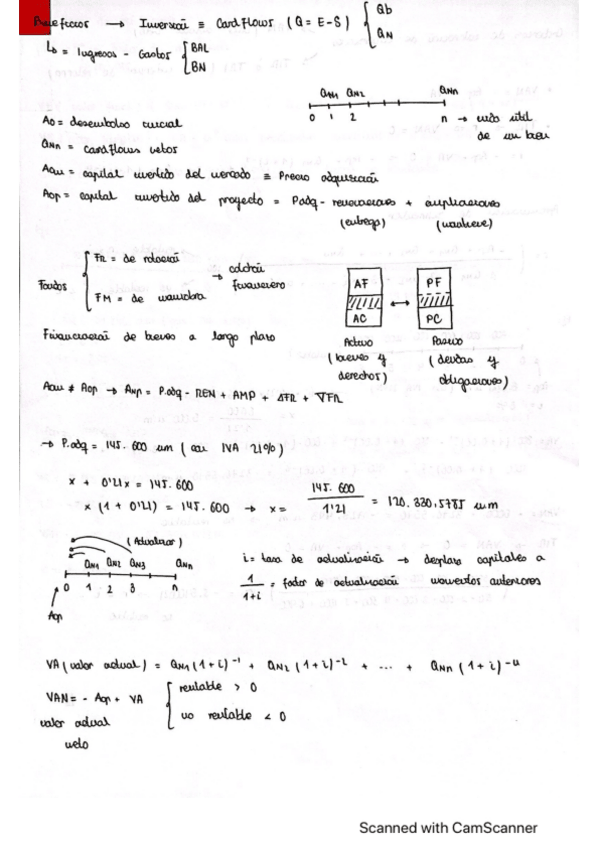 Beneficios → Inversión ≡ Cashflows (Q = E-S) { Qb
QN
↳ = Ingresos - Gastos { BAI
BN
QN1 QN2 QNn
0 1 2 n → vida útil
de un bien
A0 = desembolso inicial
QNn = cashflows netos
Aom = capital invertido del mercado ≡ Precio adquisición
Aop = capital invertido del proyecto = Padq - renovaciones + ampliaciones
(entrega) (mantiene)
Fondos { FR = de rotación → colchón
financiero
FM = de maniobra
AF PF
AC ↔ PC
Financiación de bienes a largo plazo
Activo Pasivo
(bienes y (deudas y
derechos) obligaciones)
Aom ≠ Aop → Aop = P.adq - REN + AMP + ΔFR + ∇FR
→ P.adq = 145.600 um (con IVA 21%)
x + 0'21x = 145.600
x (1 + 0'21) = 145.600 → x = 145.600 / 1'21 = 120.330,5785 um
(Actualizar)
QN1 QN2 QN3 QNn
0 1 2 3 n
Aop
i = tasa de actualización → desplaza capitales a
1/1+i = factor de actualización momentos anteriores
VA (valor actual) = QN1 (1+i)⁻¹ + QN2 (1+i)⁻² + ... + QNn (1+i)⁻ⁿ
VAN = - Aop + VA { rentable > 0
valor actual no rentable < 0
neto
Scanned with CamScanner